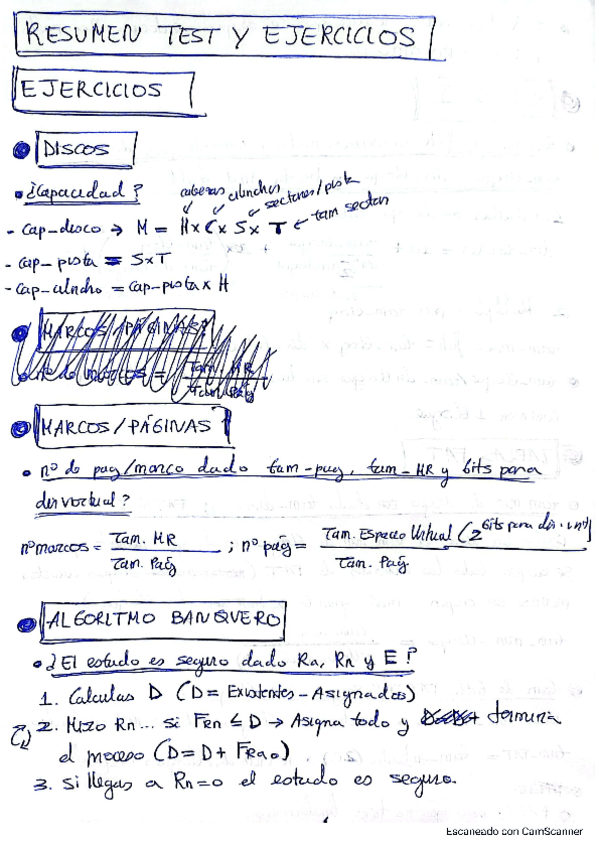 RESUMEN TEST Y EJERCICIOS
EJERCICIOS
DISCOS
¿Capacidad? cabezas cilindros sectores/pista tam sector
- Cap-disco → M = H x C x S x T
- Cap-pista = S x T
- Cap-cilindro = cap-pista x H
MARCOS/PÁGINAS
Tam. MR
Tam. Pág
MARCOS/PÁGINAS
nº de pag/marco dado tam-pag, tam-MR y bits para
dir virtual?
nº marcos = Tam. MR / Tam. Pág ; nº pág = Tam. Espacio Virtual (2^bits para dir. virt) / Tam. Pág.
ALGORITMO BANQUERO
¿El estado es seguro dado Ra, Rn y E?
1. Calculas D (D = Existentes - Asignados)
2. Miro Rn... si FRn ≤ D → Asigna todo y termina
el proceso (D = D + FRa)
3. Si llegas a Rn=0 el estado es seguro.
Escaneado con CamScanner